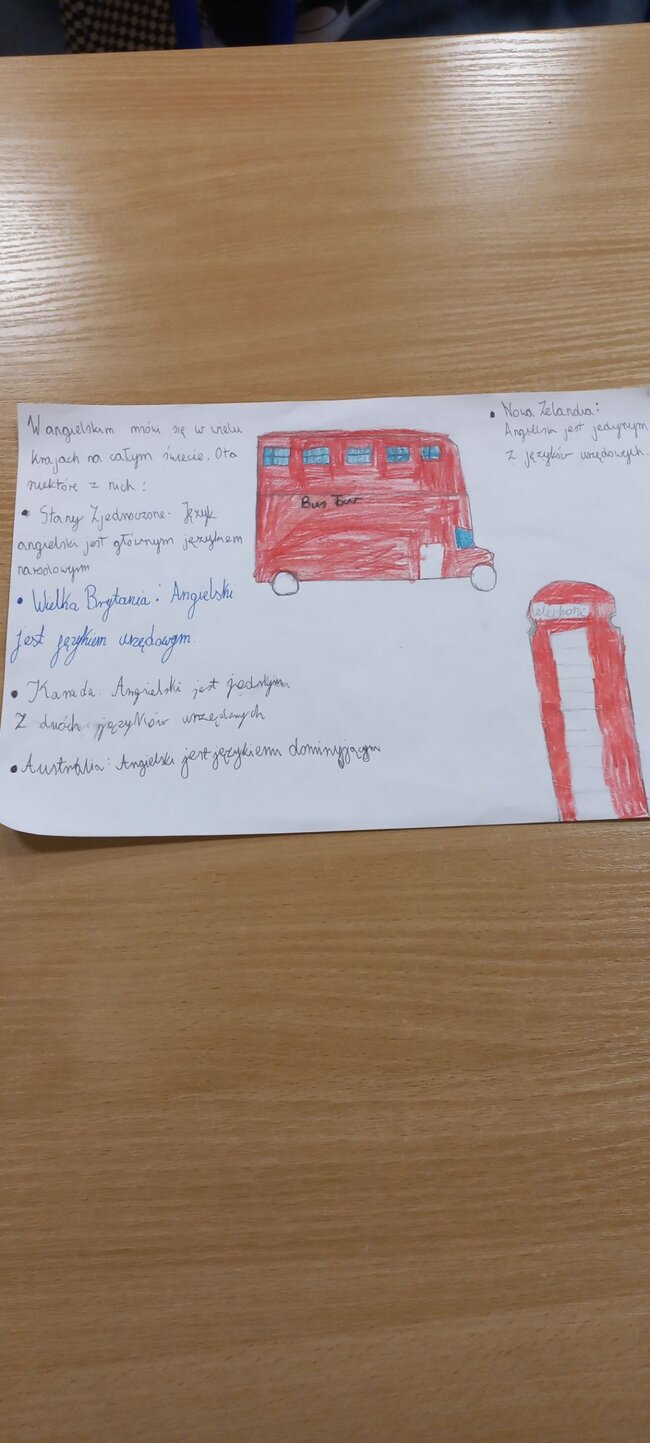 W angielskim mówi się w wielu
krajach na całym świecie. Oto
niektóre z nich:
• Stany Zjednoczone. Język
angielski jest głównym językiem
narodowym.
• Wielka Brytania: Angielski
jest językiem urzędowym.
• Kanada. Angielski jest jednym
z dwóch języków urzędowych
• Australia: Angielski jest językiem dominującym
Bus Tour
• Nowa Zelandia:
Angielski jest jedynym
z języków urzędowych.
telephone